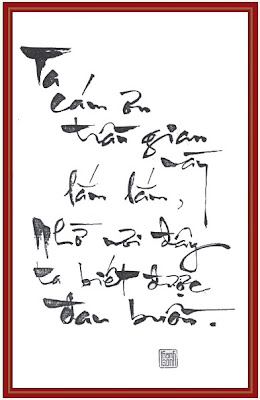 Ta
cám ơn
trần gian
nầy
lắm lắm,
Nhờ nơi đây
ta biết được
đau buồn.